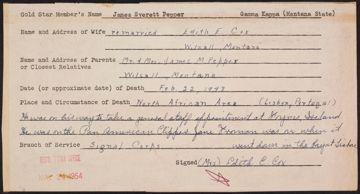 Gold Star Member's Name James Everett Pepper Gamma Kappa (Montana State)
Name and Address of Wife remarried Edith E. Cox
Wilsall, Montana
Name and Address of Parents Mr. & Mrs. James M. Pepper
or Closest Relatives
Wilsall, Montana
Date (or approximate date) of Death Feb. 22, 1943
Place and Circumstance of Death North African Area (Lisbon, Portugal)
He was on his way to take a general staff appointment at
He was on the Pan American Clipper, Jane Froman was on when it
went down in the
Branch of Service Signal Corps
Signed (Mrs) Edith E. Cox
1954